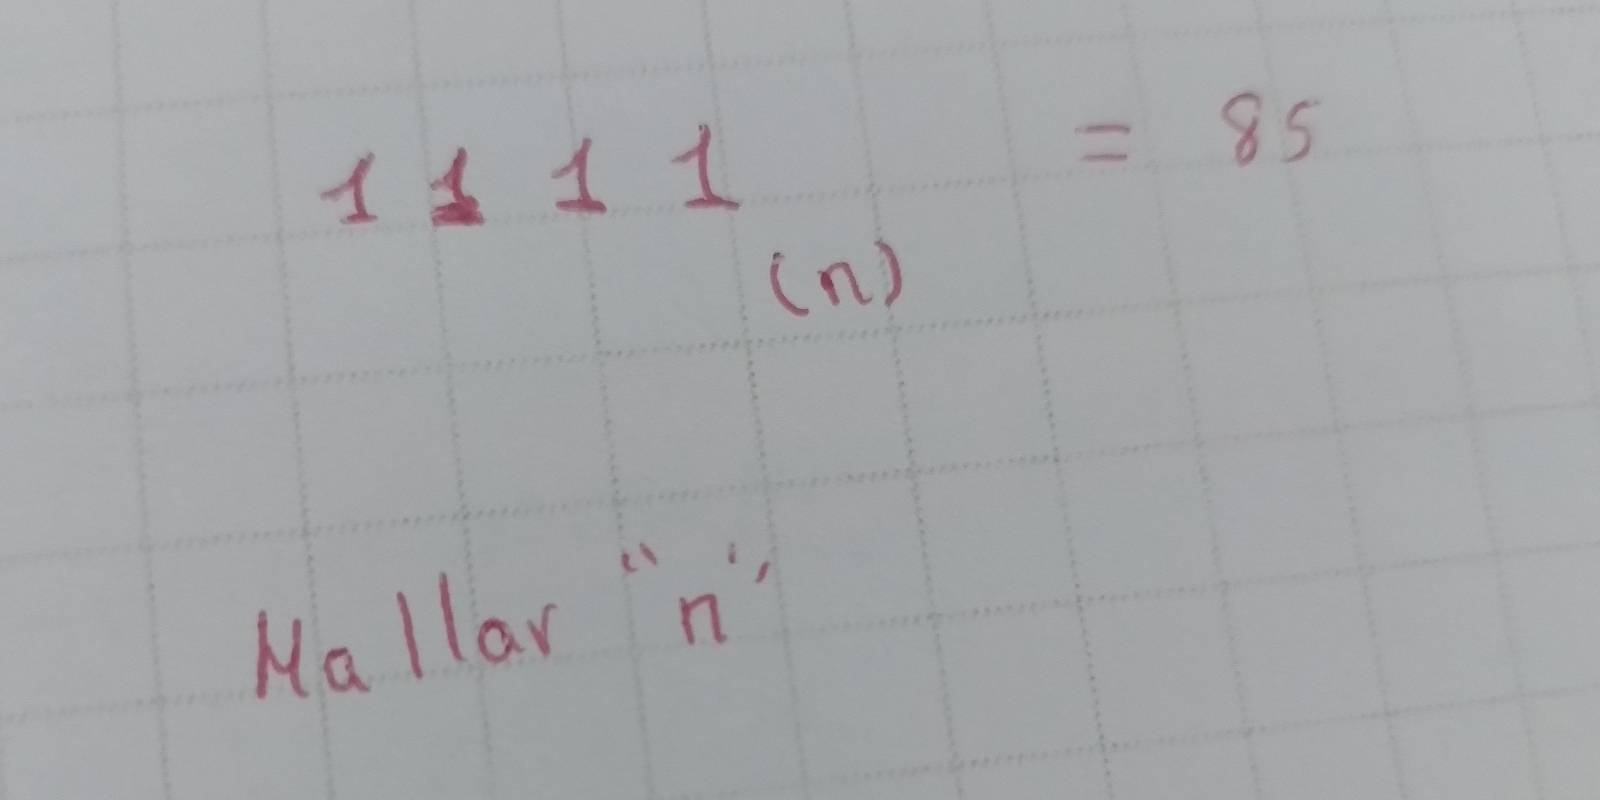 1 1 1 1 (n) = 85
Hallar "n"